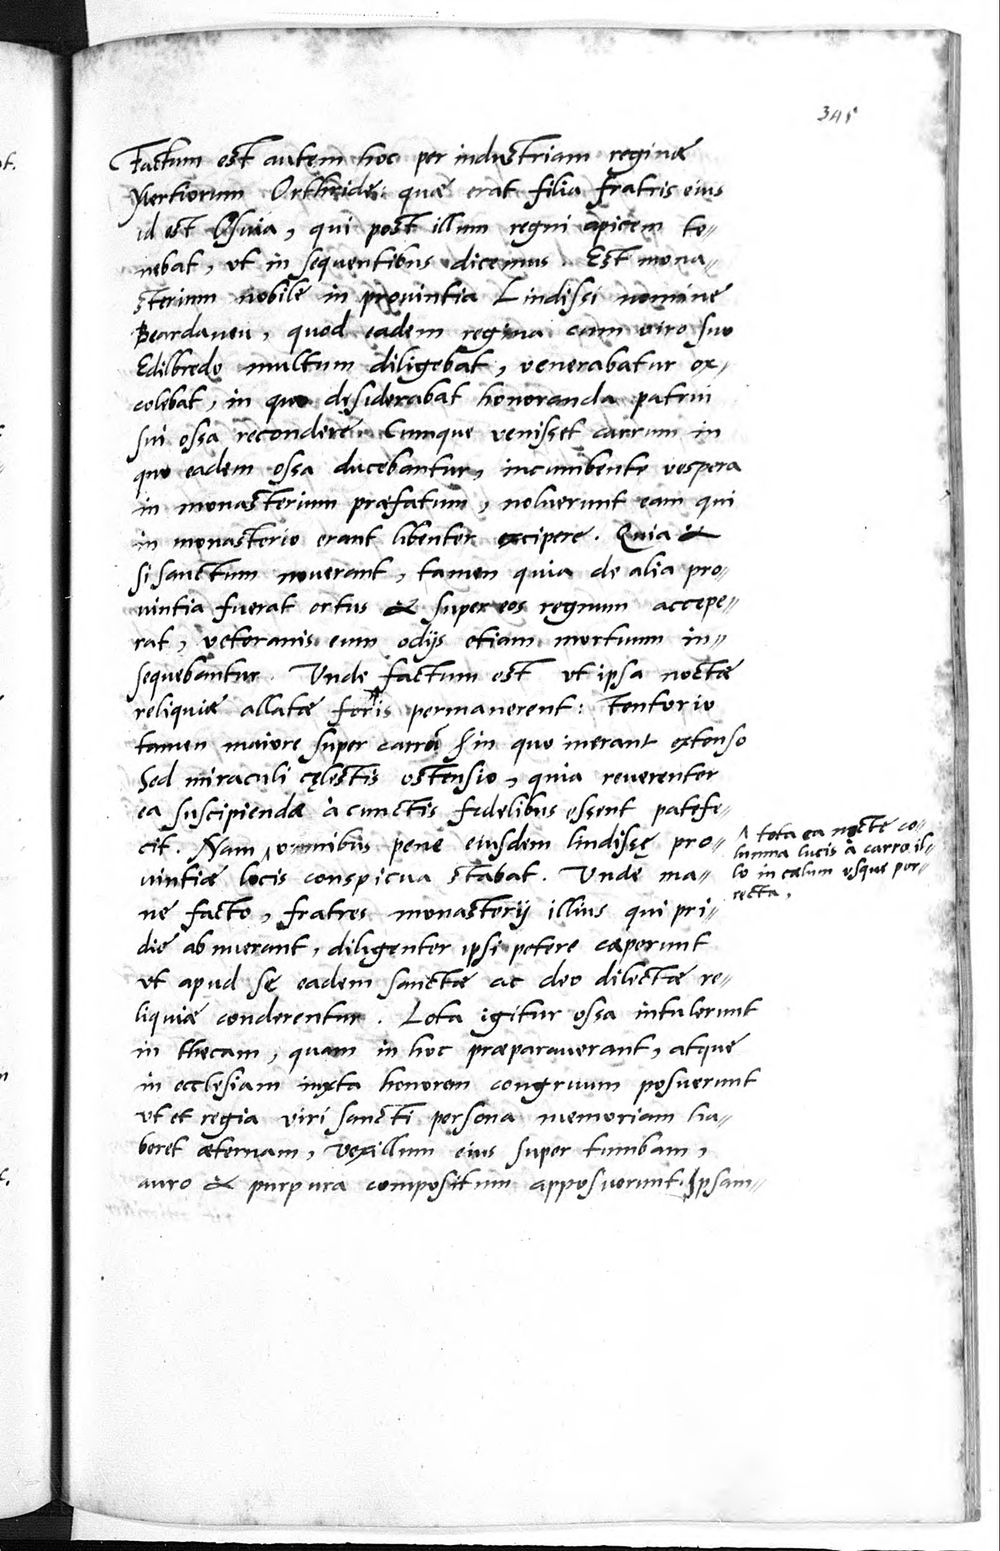 345
Factum est autem hoc per industriam reginæ
Mertiorum Orthride: quæ erat filia fratris eius
id est Osuia, qui post illum regni apicem te-
nebat, ut in sequentibus dicemus. Est mona-
sterium nobile in provintia Lindissi nomine
Beardaneu, quod eadem regina cum viro suo
Edilbredo multum diligebat, venerabatur ex-
colebat, in quo desiderabat honoranda patrui
sui ossa recondere. Cumque venisset carrum in
quo eadem ossa ducebantur, incumbente vespera
in monasterium præfatum, noluerunt eam qui
in monasterio erant libenter excipere. Quia &
si sanctum noverant, tamen quia de alia pro-
vintia fuerat ortus & super eos regnum accepe-
rat, veteranis eum odijs etiam mortuum in-
sequebantur. Unde factum est ut ipsa nocte
reliquiæ allatæ foris permanerent: Tentorio
tamen maiore super carru in quo inerant extenso
Sed miraculi cęlestis ostensio, quia reverenter
ea suscipienda à cunctis fidelibus essent patefe-
cit. Nam ^ omnibus pene eiusdem lindissę pro-
vintiæ locis conspicua stabat. Unde ma-
^ tota ea nocte co-
lumna lucis a carro il-
lo in cælum usque por-
recta,
ne facto, fratres monasterij illius qui pri-
die abnuerant, diligenter ipsi petere cæperunt
ut apud sę eadem sanctæ ac deo dilectæ re-
liquiæ conderentur. Lota igitur ossa intulerunt
in thecam, quam in hoc præparaverant, atque
in ecclesiam iuxta honorem congruum posuerunt
ut et regia viri sancti persona memoriam ha-
beret æternam, vexillum eius super tumbam,
auro & purpura compositum apposuerunt. Ipsam-